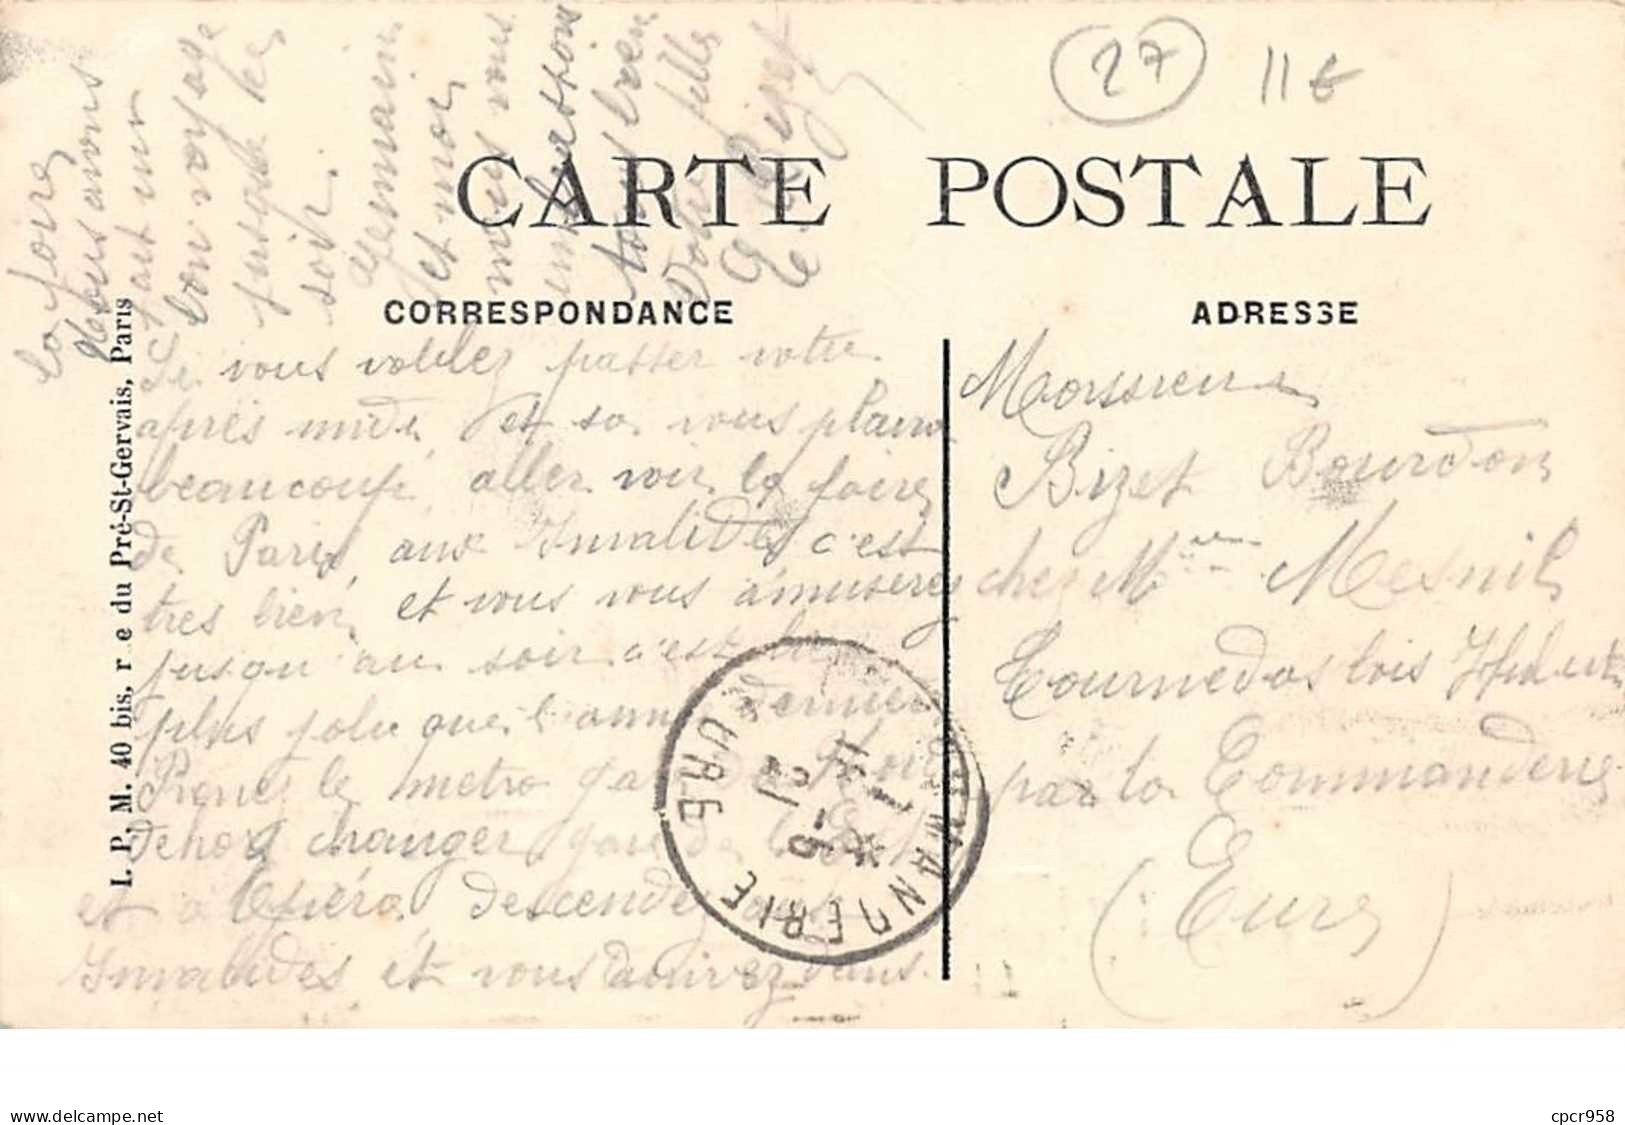 27 11€
CARTE POSTALE
CORRESPONDANCE
ADRESSE
I. P. M. 40 bis, r e du Pré-St-Gervais, Paris
Si vous voulez passer votre
après midi et sa vous plaira
beaucoup aller voir la foire
de Paris aux Invalides c'est
tres bien et vous vous amuserez
jusqu au soir c'est
plus jolie que l anné dernier
Prener le metro
dehors changer gare de l
et a l Opéra descendez
Invalides et vous arrivez dans
la foire
Nous avons
fait un
bon voyage
jusque
soir.
Germain
et moi
nous vous
embrassons
tous bien
Votre fille
E. Bizet
Monsieur
Bizet Bourdon
chez Mme Mesnil
Tournedos bois Hubert
par la Commanderie
(Eure)
COMMANDERIE
EURE
11
5 - 5
21
cpcr958
www.delcampe.net